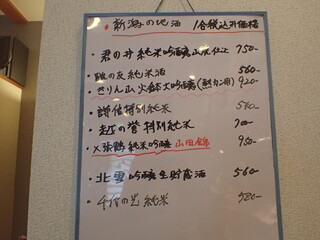 新潟の地酒 1合税込み価格
・君の井 純米吟醸 山廃仕込 750-
鶴の友 純米酒 560-
・きりん山 火鉢大吟醸(熱カン用) 920-
純米
・越の誉 特別純米 700-
・〆張鶴 純米吟醸 山田錦 950-
・北雪 吟醸生貯蔵酒 560-
・千代の光 純米